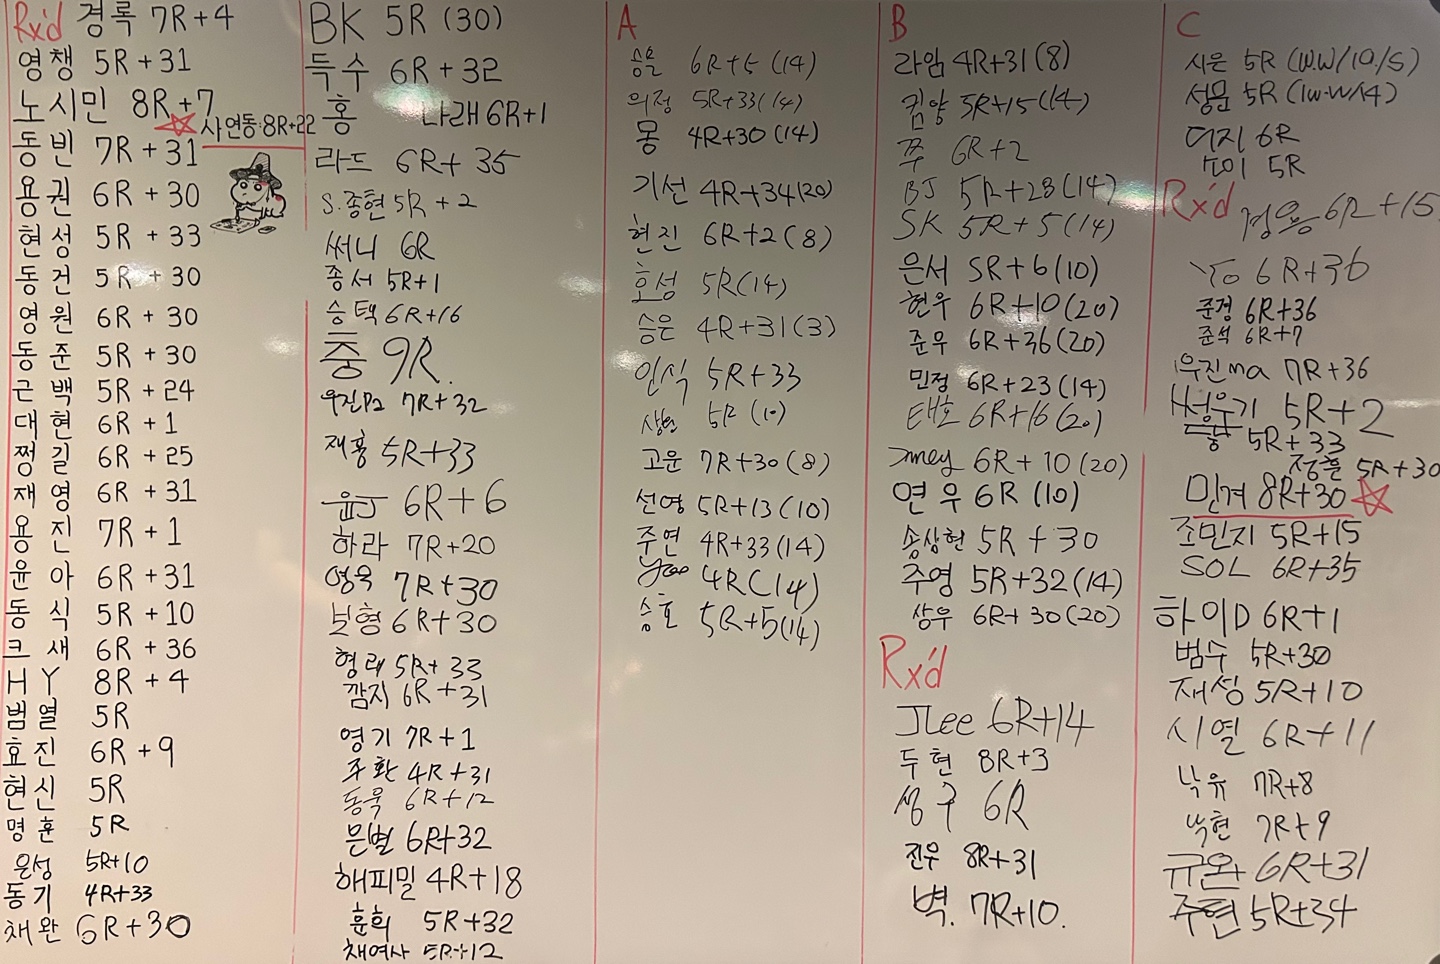 Rx'd 경록 7R+4
영챙 5R+31
노시민 8R+7
사연동:8R+22
동빈 7R+31
용권 6R+30
현성 5R+33
동건 5R+30
영원 6R+30
동준 5R+30
근백 5R+24
대현 6R+1
쩡길 6R+25
재영 6R+31
용진 7R+1
윤아 6R+31
동식 5R+10
크새 6R+36
HY 8R+4
범열 5R
효진 6R+9
현신 5R
명훈 5R
은성 5R+10
동기 4R+33
채완 6R+30
BK 5R (30)
득수 6R+32
홍 나래 6R+1
라드 6R+35
S.종현 5R+2
써니 6R
종서 5R+1
승택 6R+16
중 9R.
우진Pa 7R+32
재홍 5R+33
윤J 6R+6
하라 7R+20
영욱 7R+30
보형 6R+30
형래 5R+33
깜지 6R+31
영기 7R+1
주환 4R+31
동욱 6R+12
은별 6R+32
해피밀 4R+18
훈희 5R+32
채여사 5R+12
A
승윤 6R+5 (14)
의정 5R+33 (14)
몽 4R+30 (14)
기선 4R+34 (20)
현진 6R+2 (8)
호성 5R (14)
승은 4R+31 (3)
인식 5R+33
5R (10)
고운 7R+30 (8)
선영 5R+13 (10)
주연 4R+33 (14)
Yoo 4R (14)
승호 5R+5 (14)
B
라임 4R+31 (8)
김양 5R+15 (14)
쭈 6R+2
BJ 5R+28 (14)
SK 5R+5 (14)
은서 5R+6 (10)
현우 6R+10 (20)
준우 6R+36 (20)
민정 6R+23 (14)
태호 6R+16 (20)
6R+10 (20)
연우 6R (10)
송상현 5R+30
주영 5R+32 (14)
상우 6R+30 (20)
Rx'd
JLee 6R+14
두현 8R+3
생구 6R
진우 8R+31
벽. 7R+10.
C
시은 5R (W.W/10/5)
성문 5R (1W.W/14)
여진 6R
도이 5R
Rx'd 경용 6R+15
Yo 6R+36
준경 6R+36
준석 6R+7
우진ma 7R+36
5R+2
홍 5R+33
정훈 5R+30
민겨 8R+30
조민지 5R+15
SOL 6R+35
하이D 6R+1
범수 5R+30
재성 5R+10
시열 6R+11
낙유 7R+8
낙현 7R+9
규온 6R+31
주현 5R+34